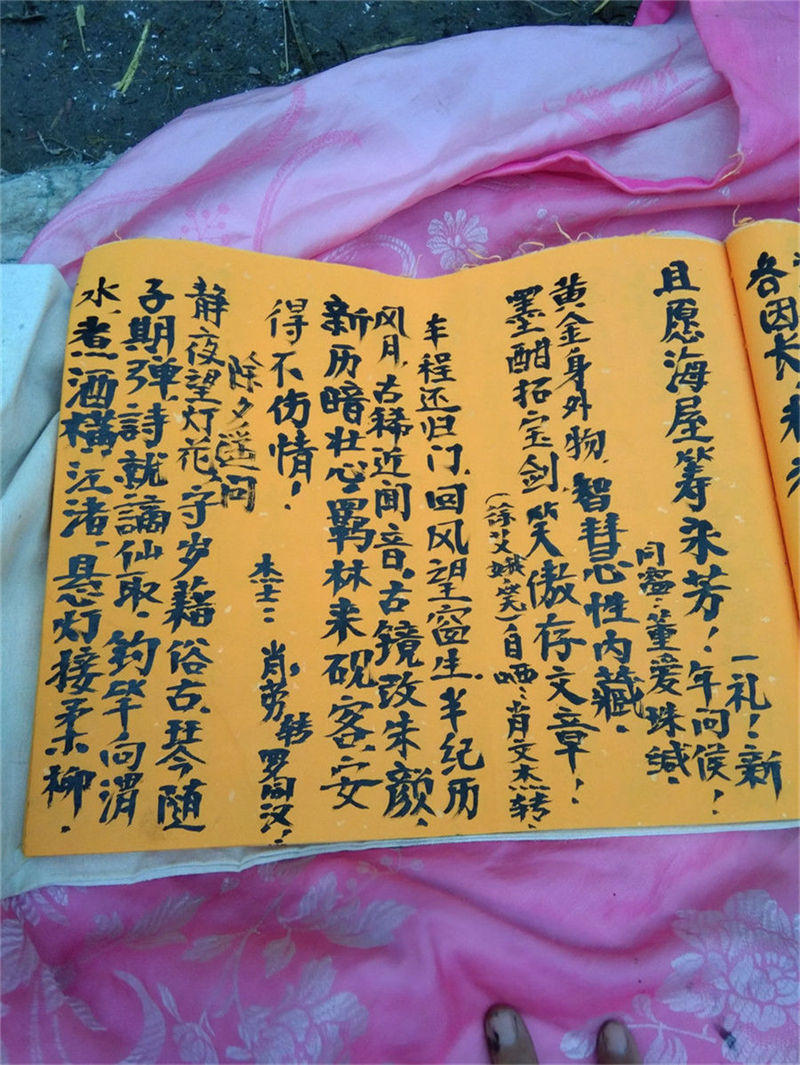 各因长
且愿海屋筹永芳！
一礼！新
年问侯！
同窗：董爱珠缄．
黄金身外物，智慧心性内藏．
墨酣拓宝剑笑傲存文章！
自哂：肖文杰转．
车程还归门，回风望窗生．半纪历
风月，古稀近闻音．古镜改朱颜，
新历暗壮心．羁林来砚客，安
得不伤情！
杰士：肖劳转罗同汉！
除夕遥问
静夜望灯花，守岁藉俗古．琴今随
子期弹，詩就謫仙取．钓竿向渭
水，煮酒横江渚．悬灯接柔柳！